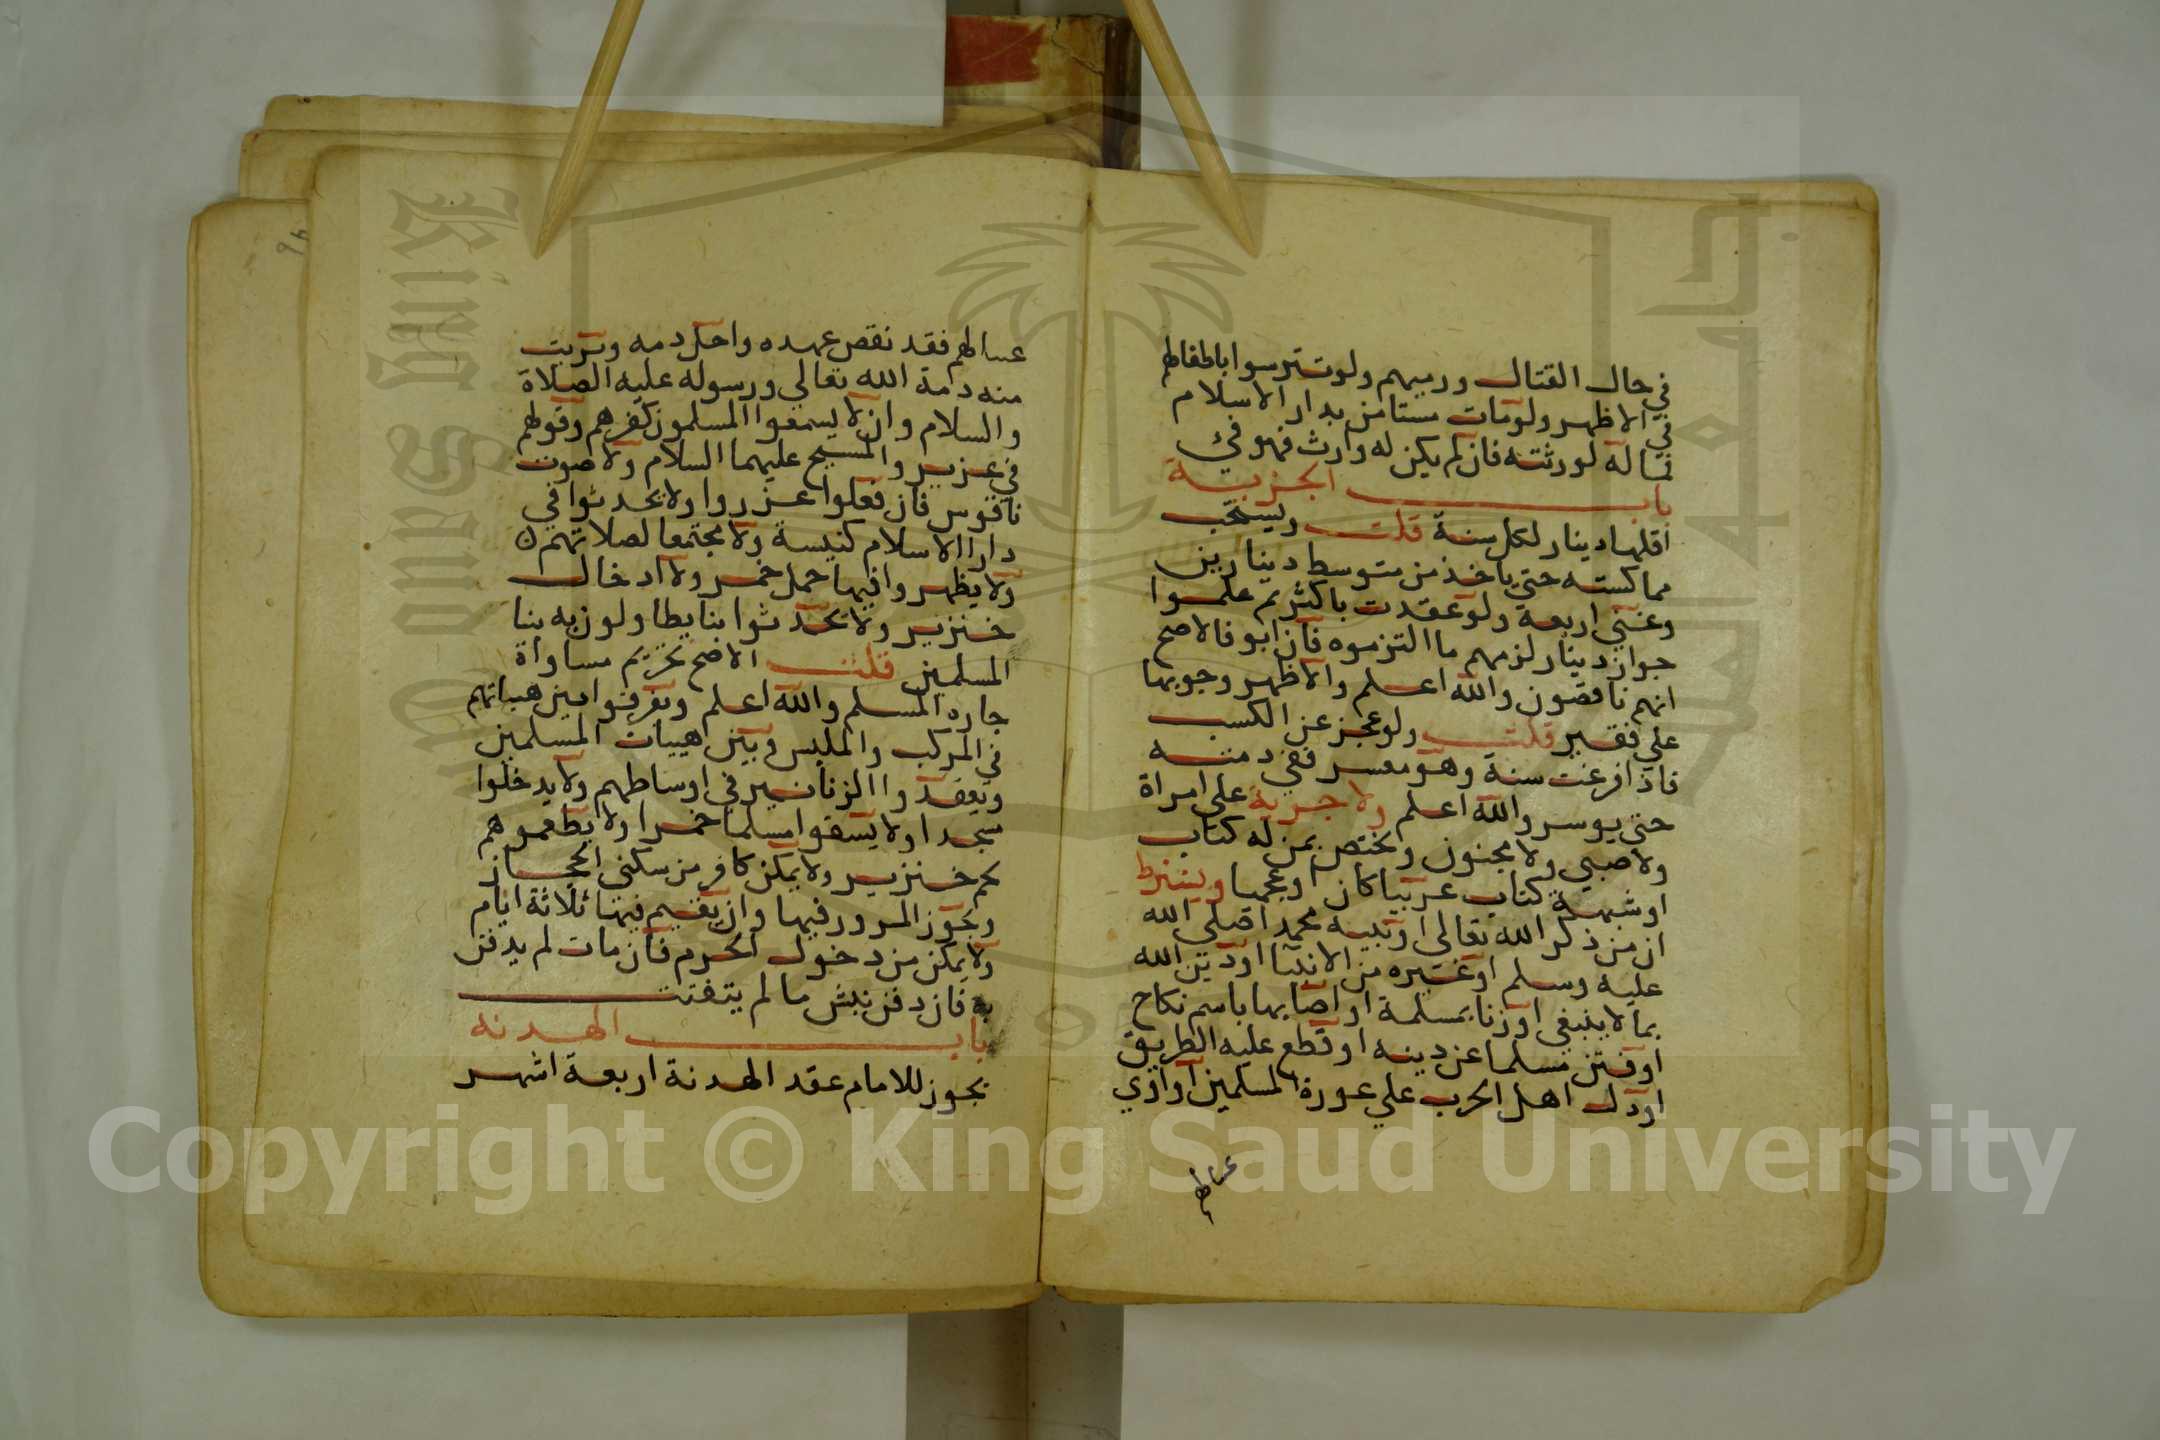 في حال القتال ورميهم ولو تترسوا باطفالهم
في الاظهر ولو مات مستامن بدار الاسلام
فماله لورثته فان لم يكن له وارث فهو فيء
باب الجزية
اقلها دينار لكل سنة قلت ويستحب
مماكسته حتي ياخذ من متوسط دينارين
وغني اربعة ولو عقدت باكثر ثم علموا
جواز دينار لزمهم ما التزموه فان ابو فالاصح
انهم ناقضون والله اعلم والاظهر وجوبها
علي فقير قلت ولو عجز عن الكسب
فاذا فرغت سنة وهو معسر ففي ذمته
حتي يوسر والله اعلم ولا جزية علي امراة
ولا صبي ولا مجنون ويختص بمن له كتاب
او شبهة كتاب عربيا كان او عجميا ويشترط
ان من ذكر الله تعالي او نبيه محمدا صلي الله
عليه وسلم او غيره من الانبيا او دين الله
بما لا ينبغي او زنا بمسلمة او اصابها باسم نكاح
او فتن مسلما عن دينه او قطع عليه الطريق
او دل اهل الحرب علي عورة المسلمين او اوي
عيالهم
عيالهم فقد نقض عهده واحل دمه وبريت
منه ذمة الله تعالي ورسوله عليه الصلاة
والسلام وان لا يسمعوا المسلمون كفرهم وقولهم
في عزير والمسيح عليهما السلام ولا صوت
ناقوس فان فعلوا عزروا ولا يحدثوا في
دار الاسلام كنيسة ولا مجتمعا لصلاتهم
ولا يظهروا فيها حمل خمر ولا ادخال
خنزير ولا يحدثوا بنا يطاولون به بنا
المسلمين قلت الاصح تحريم مساواة
جاره المسلم والله اعلم ويفرقوا بين هياتهم
في المركب والملبس وبين هييات المسلمين
ويعقدوا الزنانير في اوساطهم ولا يدخلوا
مسجدا ولا يسقوا مسلما خمرا ولا يطعموهم
لحم خنزير ولا يمكن كافر من سكني الحجاز
ويجوز المرور فيها وان يقيم فيها ثلاثة ايام
ولا يمكن من دخول الحرم فان مات لم يدفن
به فان دفن نبش ما لم يتفتت
باب الهدنه
يجوز للامام عقد الهدنة اربعة اشهر
King Saud University
جامعة الملك سعود
1957
Copyright © King Saud University